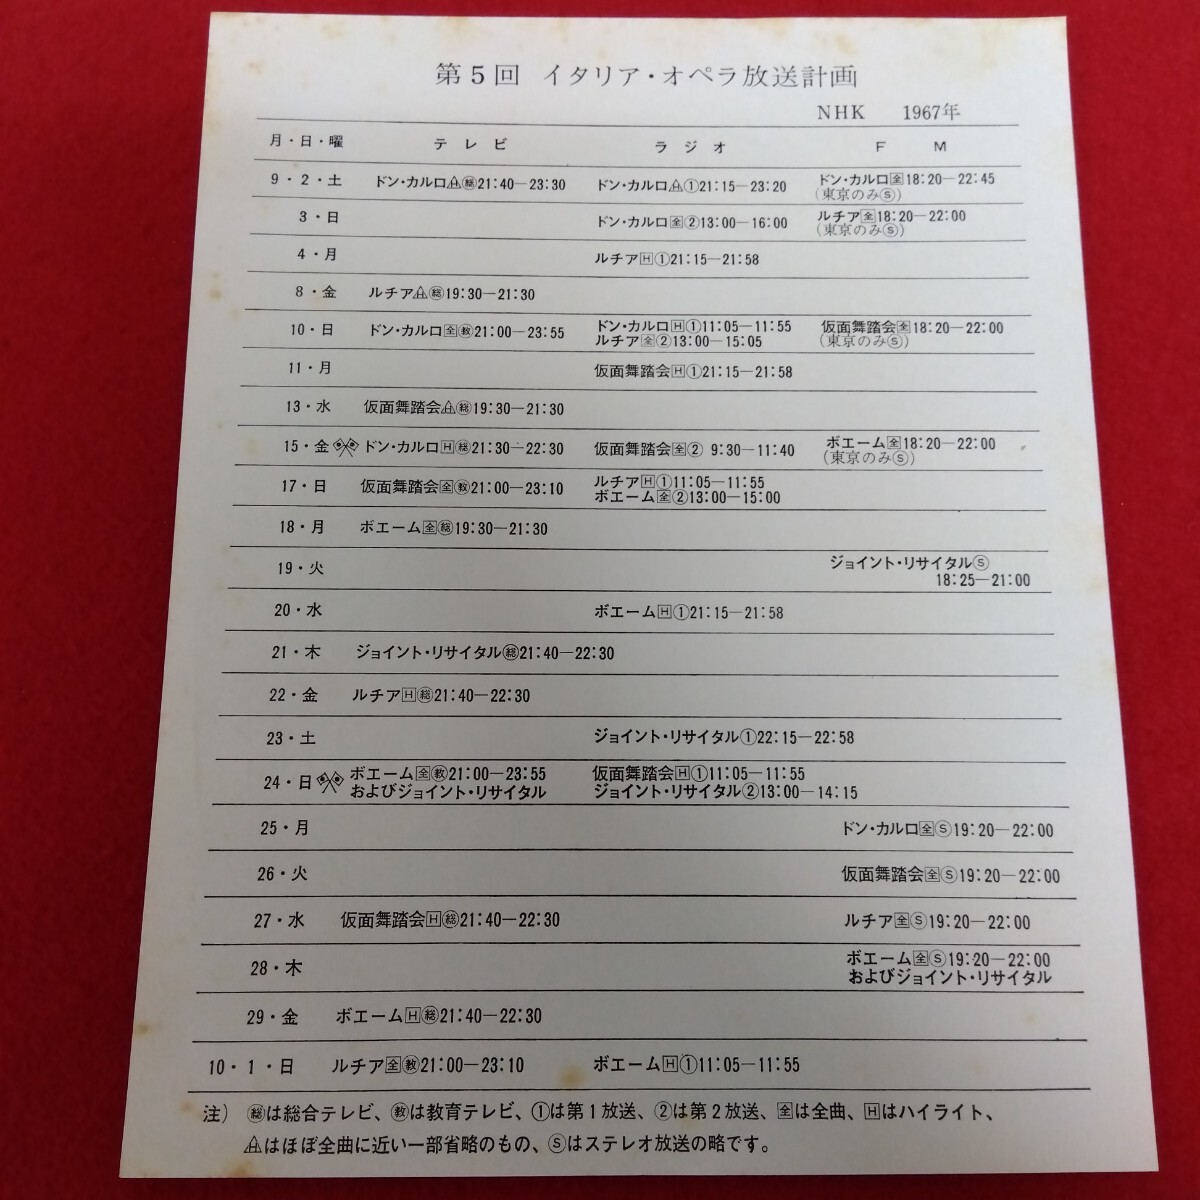 第5回 イタリア・オペラ放送計画
NHK 1967年
月・日・曜 テレビ ラジオ FM
9・2・土 ドン・カルロ㊤21:40—23:30 ドン・カルロ①21:15—23:20 ドン・カルロ全18:20—22:45
(東京のみⓈ)
3・日 ドン・カルロ全②13:00—16:00 ルチア全18:20—22:00
(東京のみⓈ)
4・月 ルチアH①21:15—21:58
8・金 ルチア 総19:30—21:30
10・日 ドン・カルロ全教21:00—23:55 ドン・カルロH①11:05—11:55 仮面舞踏会全18:20—22:00
ルチア全②13:00—15:05 (東京のみⓈ)
11・月 仮面舞踏会H①21:15—21:58
13・水 仮面舞踏会 総19:30—21:30
15・金 ドン・カルロH総21:30—22:30 仮面舞踏会全② 9:30—11:40 ボエーム全18:20—22:00
(東京のみⓈ)
17・日 仮面舞踏会全教21:00—23:10 ルチアH①11:05—11:55
ボエーム全②13:00—15:00
18・月 ボエーム全総19:30—21:30
19・火 ジョイント・リサイタルⓈ
18:25—21:00
20・水 ボエームH①21:15—21:58
21・木 ジョイント・リサイタル総21:40—22:30
22・金 ルチアH総21:40—22:30
23・土 ジョイント・リサイタル①22:15—22:58
24・日 ボエーム全教21:00—23:55 仮面舞踏会H①11:05—11:55
およびジョイント・リサイタル ジョイント・リサイタル②13:00—14:15
25・月 ドン・カルロ全Ⓢ19:20—22:00
26・火 仮面舞踏会全Ⓢ19:20—22:00
27・水 仮面舞踏会H総21:40—22:30 ルチア全Ⓢ19:20—22:00
28・木 ボエーム全Ⓢ19:20—22:00
およびジョイント・リサイタル
29・金 ボエームH総21:40—22:30
10・1・日 ルチア全教21:00—23:10 ボエームH①11:05—11:55
注) 総は総合テレビ、教は教育テレビ、①は第1放送、②は第2放送、全は全曲、Hはハイライト、
はほぼ全曲に近い一部省略のもの、Ⓢはステレオ放送の略です。